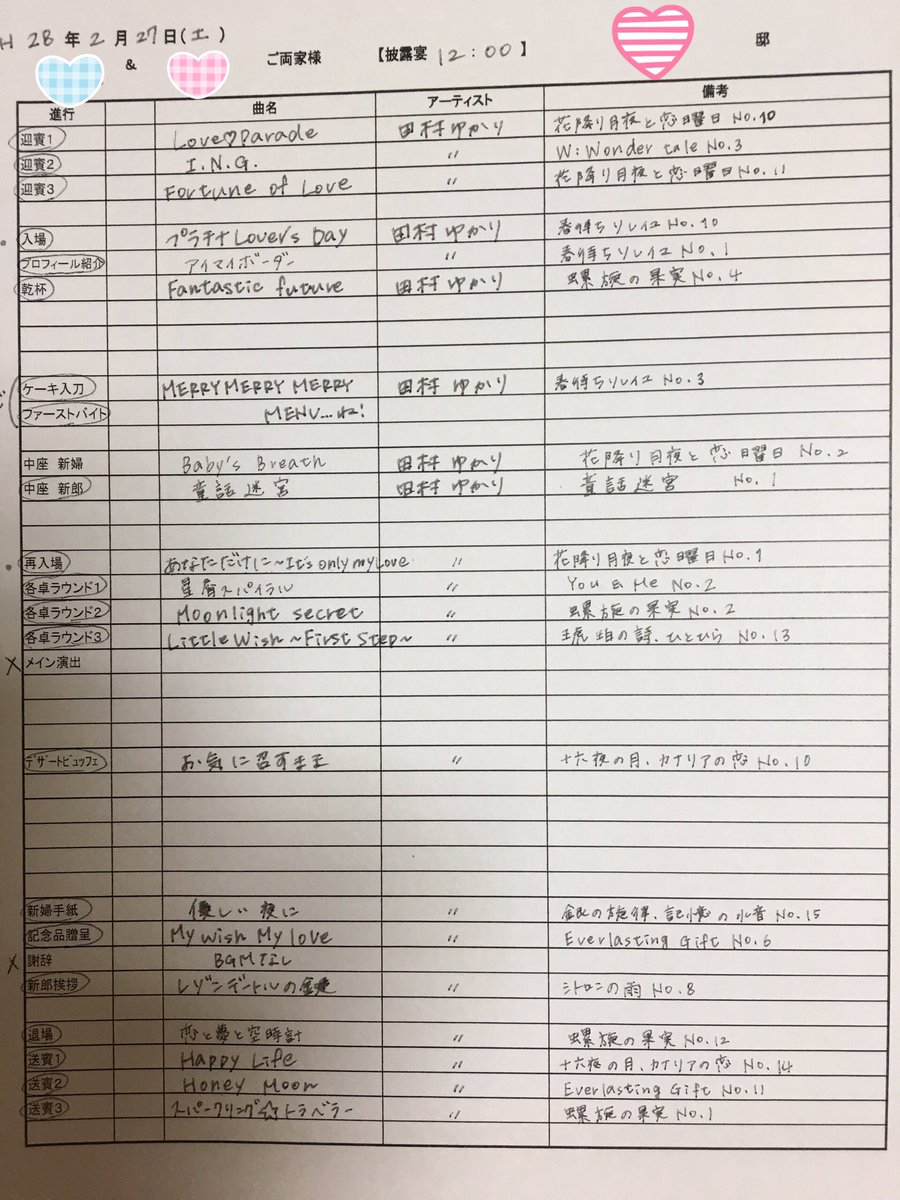 H 28 年 2 月 27 日(土)
& ご両家様 【披露宴 12:00 】 邸
進行 曲名 アーティスト 備考
迎賓1 Love♡Parade 田村ゆかり 花降り月夜と恋曜日 No.10
迎賓2 I.N.G. 〃 W:Wonder tale No.3
迎賓3 Fortune of Love 〃 花降り月夜と恋曜日 No.11
入場 プラチナLover's Day 田村ゆかり 春待ちソレイユ No.10
プロフィール紹介 アイマイボーダー 〃 春待ちソレイユ No.1
乾杯 Fantastic future 田村ゆかり 螺旋の果実 No.4
ケーキ入刀 MERRY MERRY MERRY 田村ゆかり 春待ちソレイユ No.3
ファーストバイト MENU...ね!
中座 新婦 Baby's Breath 田村ゆかり 花降り月夜と恋曜日 No.2
中座 新郎 童話迷宮 田村ゆかり 童話迷宮 No.1
再入場 あなただけに~It's only my Love 〃 花降り月夜と恋曜日 No.9
各卓ラウンド1 星屑スパイラル 〃 You & Me No.2
各卓ラウンド2 Moonlight secret 〃 螺旋の果実 No.2
各卓ラウンド3 Little Wish ~First Step~ 〃 琥珀の詩、ひとひら No.13
× メイン演出
デザートビュッフェ お気に召すまま 〃 十六夜の月、カナリアの恋 No.10
新婦手紙 優しい夜に 〃 銀の旋律、記憶の水音 No.15
記念品贈呈 My wish My love 〃 Everlasting Gift No.6
× 謝辞 BGMなし
新郎挨拶 レゾンデートルの鍵 〃 シトロンの雨 No.8
退場 恋と夢と空時計 〃 螺旋の果実 No.12
送賓1 Happy Life 〃 十六夜の月、カナリアの恋 No.14
送賓2 Honey Moon 〃 Everlasting Gift No.11
送賓3 スパークリング☆トラベラー 〃 螺旋の果実 No.1